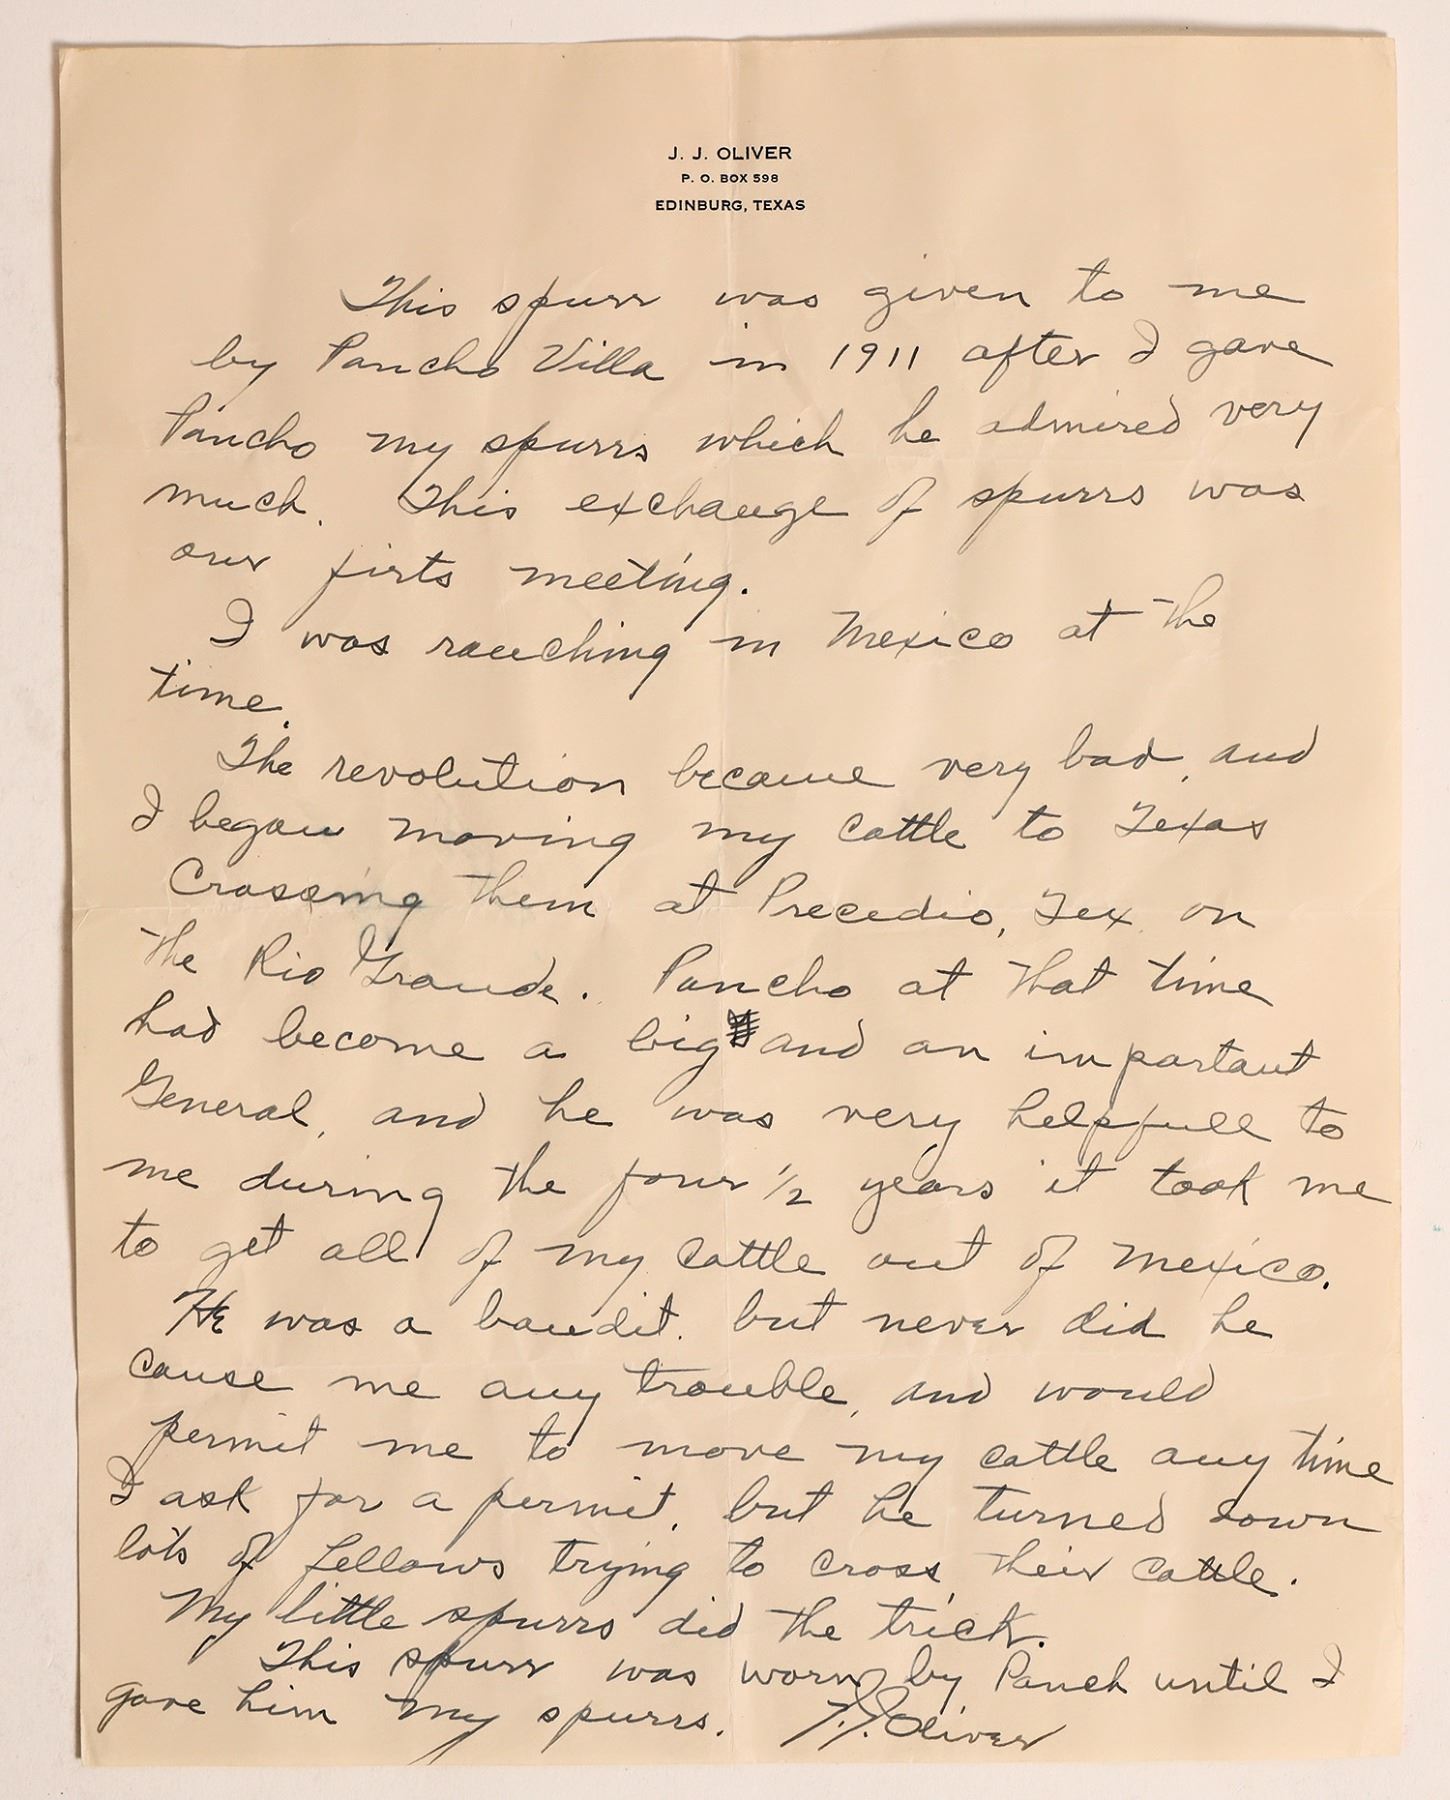 J. J. OLIVER
P. O. BOX 598
EDINBURG, TEXAS
This spurr was given to me
by Pancho Villa in 1911 after I gave
Pancho my spurrs which he admired very
much. This exchange of spurrs was
our firts meeting.
I was ranching in Mexico at the
time.
The revolution became very bad, and
I began moving my cattle to Texas
Crossing them at Precedio, Tex. on
the Rio Grande. Pancho at that time
had become a big and an important
General, and he was very helpfull to
me during the four ½ years it took me
to get all of my cattle out of Mexico.
He was a bandit. but never did he
cause me any trouble, and would
permit me to move my cattle any time
I ask for a permit, but he turned down
lots of fellows trying to cross their cattle.
My little spurrs did the trick.
This spurr was worn by Panch until I
gave him my spurrs. J.J. Oliver